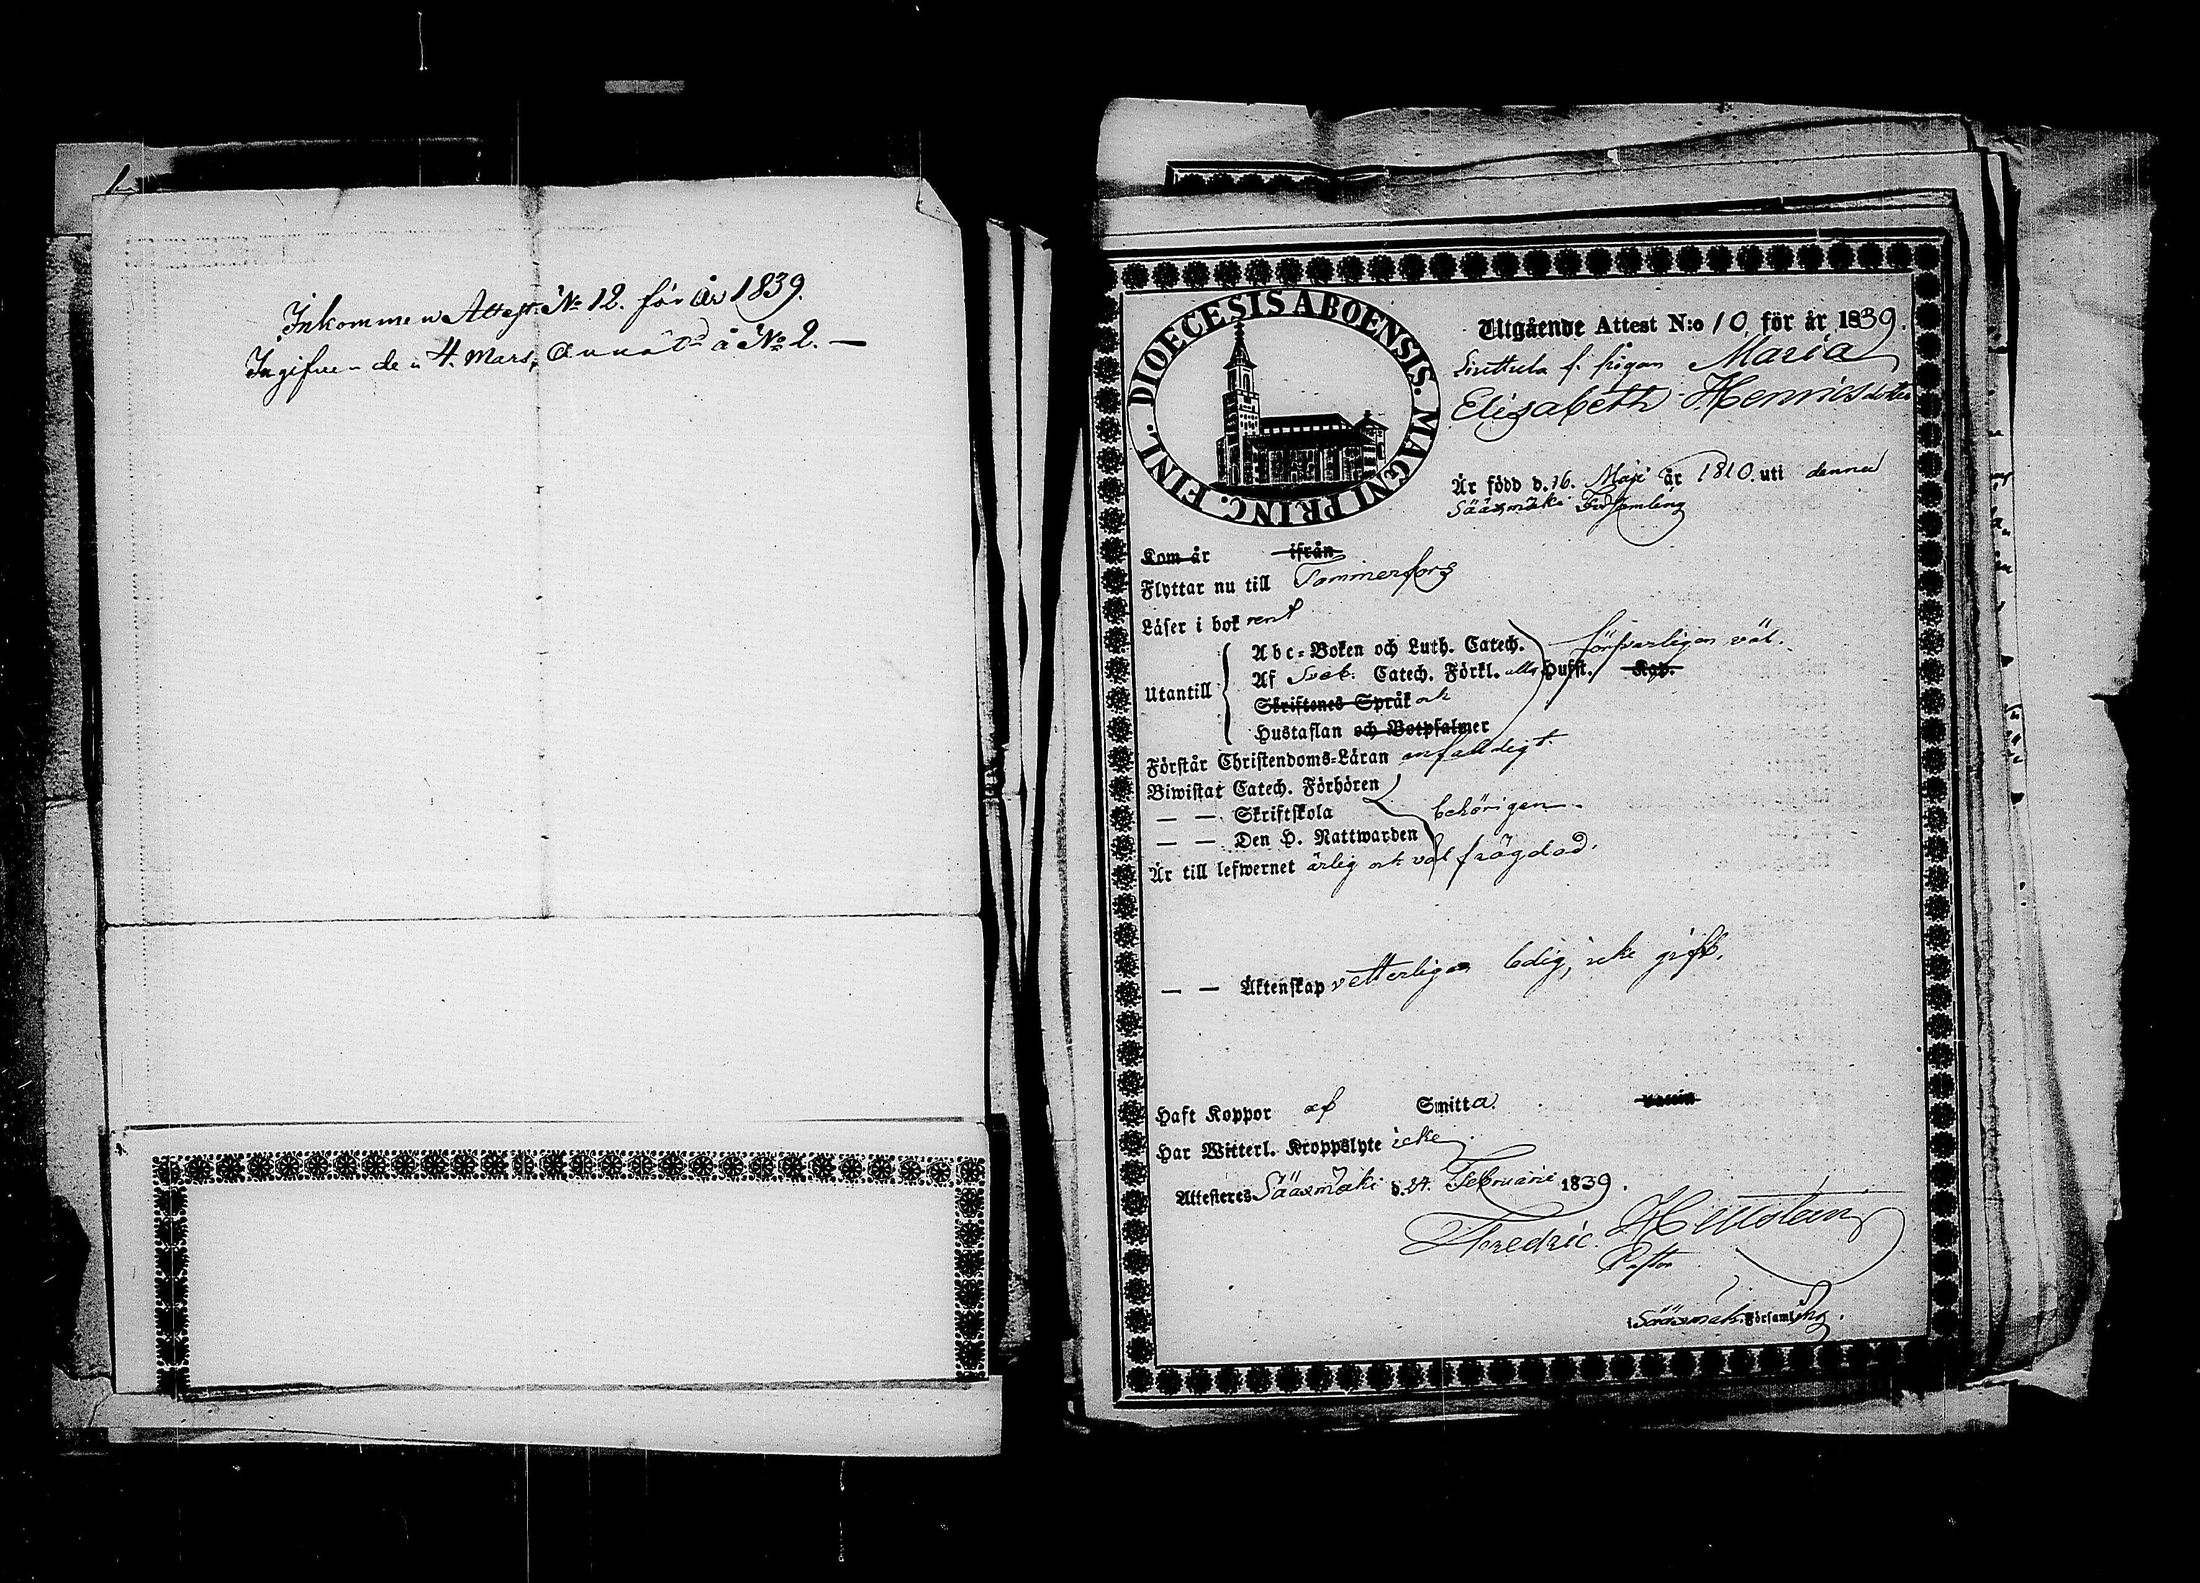 Inkommen Attest: No 12. för år 1839.
Ingifven den 4. Mars, å No 2. —
DIOECESIS ABOENSIS. MAGNI PRINC. FINL.
Utgående Attest N:o 10, för år 1839.
f. pigan Maria
Elisabeth Henricsdotter
Är född d. 16. Maji år 1810. uti denna
Sääxmäki Församling
Kom år ifrån
Flyttar nu till Tammerfors
Läser i bok rent
Utantill
Abc-Boken och Luth. Catech. försvarligen väl.
Af Sveb. Catech. Förkl. alla Hufst. Kap.
Skriftenes Språk och
Hustaflan och Botpsalmer
Förstår Christendoms-Läran enfaldigt.
Biwistat Catech. Förhören
— — Skriftskola behörigen.
— — Den H. Nattwarden
Är till lefwernet ärlig och väl frägdad.
— — Äktenskap vetterligen ledig, icke gift.
Haft Koppor af Smitta. Vaccin
Har Witterl. Kroppslyte icke.
Attesteres Sääxmäki d. 24. Februarii 1839.
Fredric
Pastor
i Sääxmäki Församling.